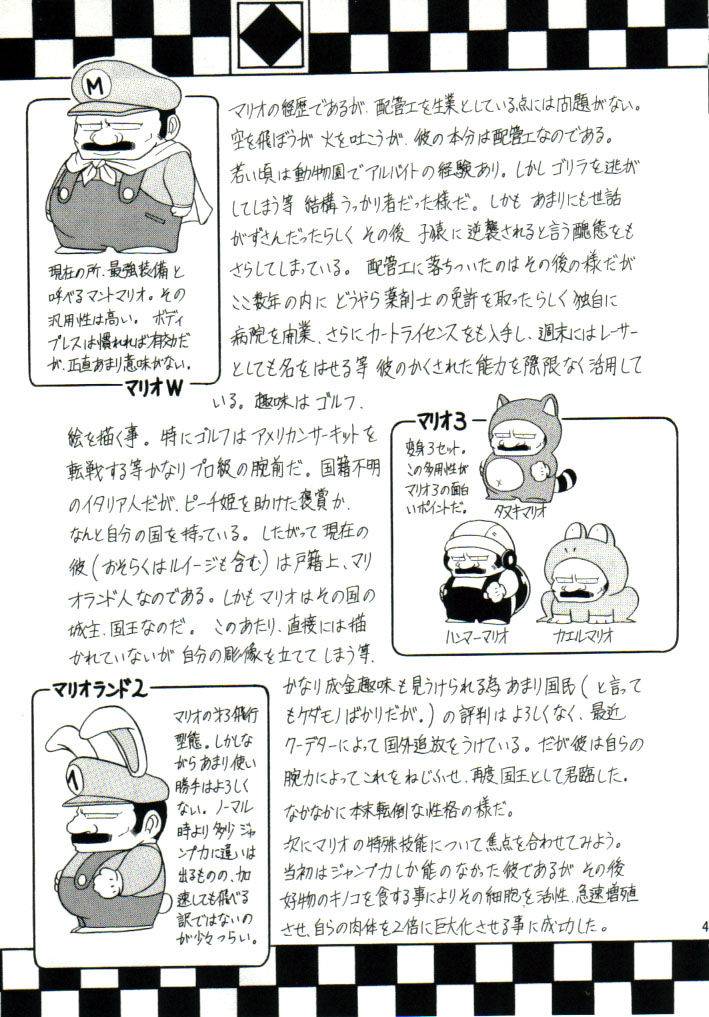 M
現在の所、最強装備と
呼べるマントマリオ。その
汎用性は高い。ボディ
プレスは慣れれば有効だ
が、正直あまり意味がない。
マリオW
マリオの経歴であるが、配管工を生業としている点には問題がない。
空を飛ぼうが 火を吐こうが、彼の本分は配管工なのである。
若い頃は動物園でアルバイトの経験あり。しかしゴリラを逃が
してしまう等 結構うっかり者だった様だ。しかも あまりにも世話
がずさんだったらしく その後 子猿に逆襲されると言う醜態をも
さらしてしまっている。 配管工に落ちついたのはその後の様だが
ここ数年の内に どうやら薬剤士の免許を取ったらしく 独自に
病院を開業、さらにカートライセンスをも入手し、週末にはレーサー
としても名をはせる等 彼のかくされた能力を際限なく活用して
いる。趣味はゴルフ、
絵を描く事。特にゴルフはアメリカンサーキットを
転戦する等かなりプロ級の腕前だ。国籍不明
のイタリア人だが、ピーチ姫を助けた褒賞か、
なんと自分の国を持っている。したがって現在の
彼(おそらくはルイージも含む)は戸籍上、マリ
オランド人なのである。しかもマリオはその国の
城主、国王なのだ。 このあたり、直接には描
かれていないが 自分の彫像を立ててしまう等、
マリオ3
変身3セット。
この多用性が
マリオ3の面白
いポイントだ。
タヌキマリオ
ハンマーマリオ
カエルマリオ
マリオランド2
マリオの第3飛行
型態。しかしな
がらあまり使い
勝手はよろしく
ない。ノーマル
時より多少ジャ
ンプ力に違いは
出るものの、加
速しても飛べる
訳ではないの
が少々つらい。
かなり成金趣味も見うけられる為 あまり国民(と言って
もケダモノばかりだが。)の評判はよろしくなく、最近
クーデターによって国外追放をうけている。だが彼は自らの
腕力によってこれをねじふせ、再度国王として君臨した。
なかなかに本末転倒な性格の様だ。
次にマリオの特殊技能について焦点を合わせてみよう。
当初はジャンプ力しか能のなかった彼であるが その後
好物のキノコを食する事によりその細胞を活性、急速増殖
させ、自らの肉体を2倍に巨大化させる事に成功した。
4